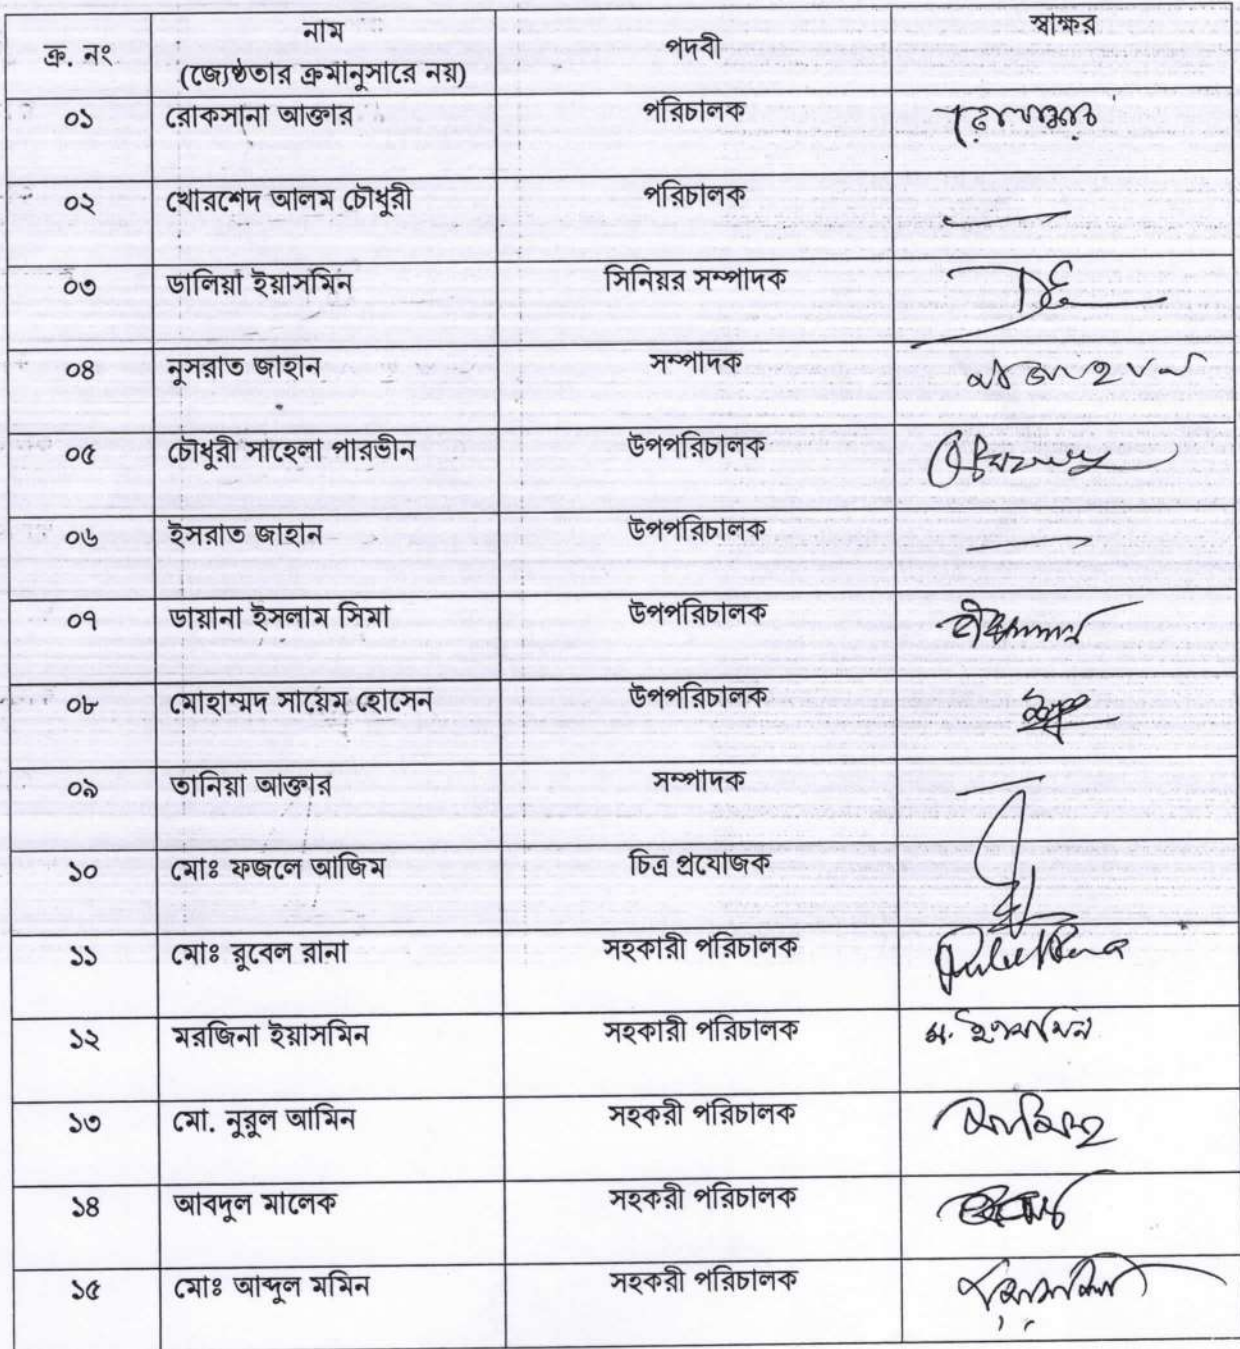 ক্র. নং নাম পদবী স্বাক্ষর
(জ্যেষ্ঠতার ক্রমানুসারে নয়)
০১ রোকসানা আক্তার পরিচালক
০২ খোরশেদ আলম চৌধুরী পরিচালক
০৩ ডালিয়া ইয়াসমিন সিনিয়র সম্পাদক
০৪ নুসরাত জাহান সম্পাদক
০৫ চৌধুরী সাহেলা পারভীন উপপরিচালক
০৬ ইসরাত জাহান উপপরিচালক
০৭ ডায়ানা ইসলাম সিমা উপপরিচালক
০৮ মোহাম্মদ সায়েম হোসেন উপপরিচালক
০৯ তানিয়া আক্তার সম্পাদক
১০ মোঃ ফজলে আজিম চিত্র প্রযোজক
১১ মোঃ রুবেল রানা সহকারী পরিচালক
১২ মরজিনা ইয়াসমিন সহকারী পরিচালক ম. ইয়াসমিন
১৩ মো. নুরুল আমিন সহকরী পরিচালক
১৪ আবদুল মালেক সহকরী পরিচালক
১৫ মোঃ আব্দুল মমিন সহকরী পরিচালক